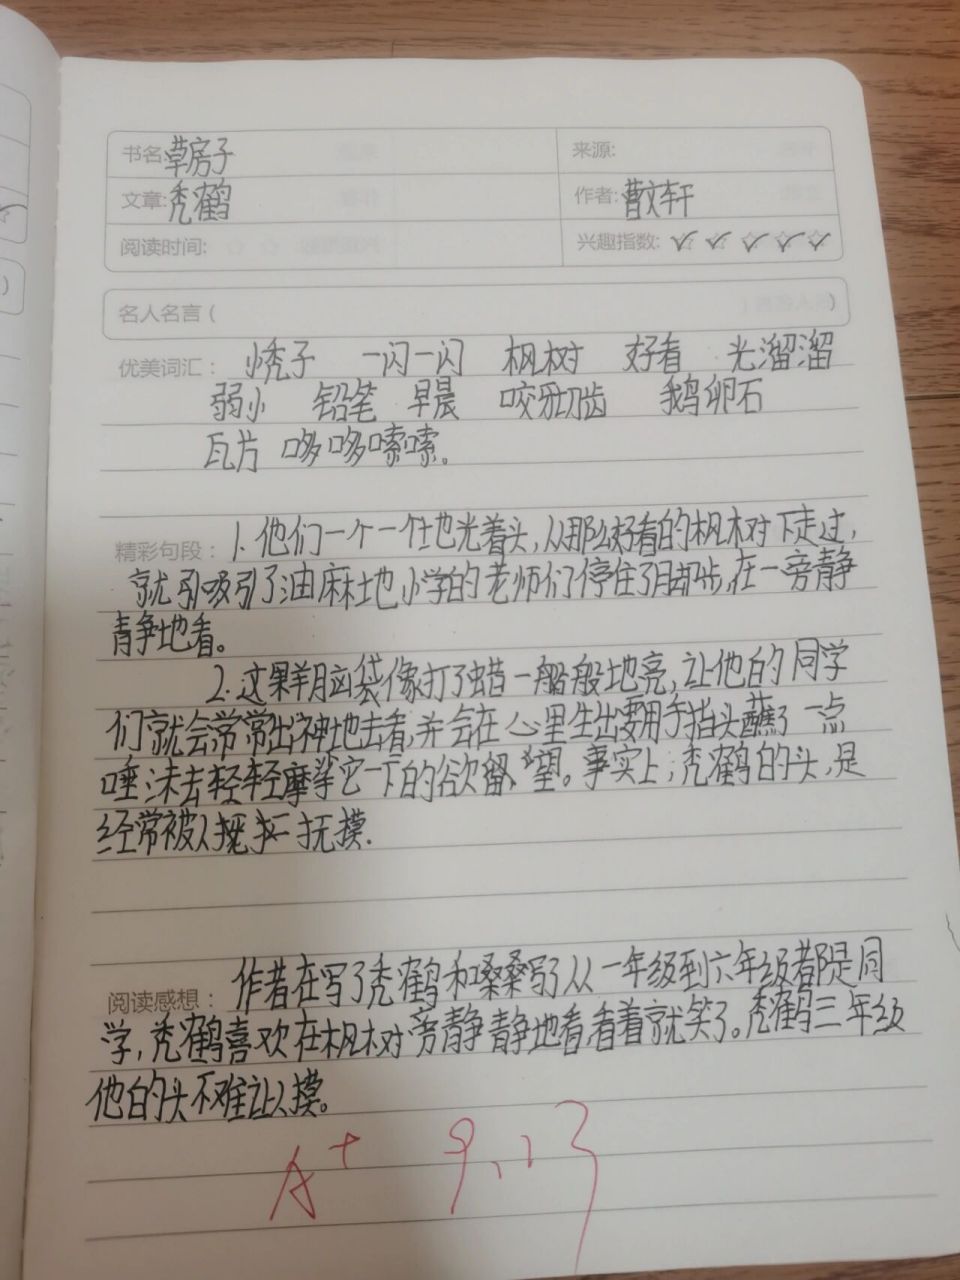 书名:草房子 来源:
文章:秃鹤 作者:曹文轩
阅读时间: 兴趣指数:
名人名言( )
优美词汇: 小秃子 一闪一闪 枫树 好看 光溜溜
弱小 铅笔 早晨 咬牙切齿 鹅卵石
瓦片 哆哆嗦嗦。
精彩句段: 1.他们一个一个地光着头,从那么好看的枫树下走过,
就引吸引了油麻地小学的老师们停住了脚步,在一旁静
静地看。
2.这果 脑袋像打了蜡一般般地亮,让他的同学
们就会常常出神地去看,并会在心里生出要用手指头蘸了一点
唾沫去轻轻摩挲它一下的欲 望。事实上,秃鹤的头,是
经常被人 抚摸.
阅读感想: 作者在写了秃鹤和桑桑写了从一年级到六年级都是同
学,秃鹤喜欢在枫树旁静静地看,看着就笑了。秃鹤三年级
他的头不难让人摸。
A+ 9.13